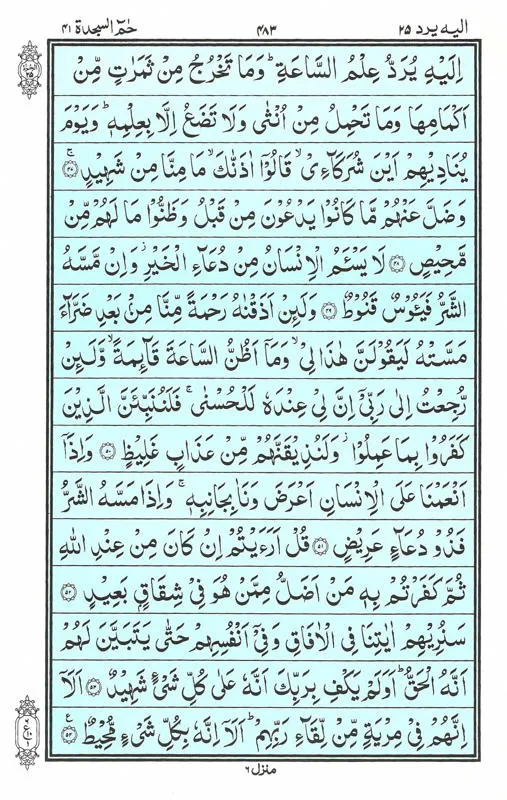 حٰمٓ السجدة ٤١ ٤٨٣ اليه يرد ٢٥
اِلَيْهِ يُرَدُّ عِلْمُ السَّاعَةِ ؕ وَمَا تَخْرُجُ مِنْ ثَمَرٰتٍ مِّنْ
اَكْمَامِهَا وَمَا تَحْمِلُ مِنْ اُنْثٰى وَلَا تَضَعُ اِلَّا بِعِلْمِهٖ ؕ وَيَوْمَ
يُنَادِيْهِمْ اَيْنَ شُرَكَآءِىْ ۙ قَالُوْۤا اٰذَنّٰكَ ۙ مَا مِنَّا مِنْ شَهِيْدٍ ۚ‏ ﴿۴۷﴾
وَضَلَّ عَنْهُمْ مَّا كَانُوْا يَدْعُوْنَ مِنْ قَبْلُ وَظَنُّوْا مَا لَهُمْ مِّنْ
مَّحِيْصٍ ﴿۴۸﴾ لَا يَسْئَمُ الْاِنْسَانُ مِنْ دُعَآءِ الْخَيْرِ ز وَاِنْ مَّسَّهُ
الشَّرُّ فَيَئُوْسٌ قَنُوْطٌ ﴿۴۹﴾ وَلَئِنْ اَذَقْنٰهُ رَحْمَةً مِّنَّا مِنْۢ بَعْدِ ضَرَّآءَ
مَسَّتْهُ لَيَقُوْلَنَّ هٰذَا لِىْ ۙ وَمَاۤ اَظُنُّ السَّاعَةَ قَآئِمَةً ۙ وَّلَئِنْ
رُّجِعْتُ اِلٰى رَبِّىْۤ اِنَّ لِىْ عِنْدَهٗ لَلْحُسْنٰى ۚ فَلَنُنَبِّئَنَّ الَّذِيْنَ
كَفَرُوْا بِمَا عَمِلُوْا ز وَلَنُذِيْقَنَّهُمْ مِّنْ عَذَابٍ غَلِيْظٍ ﴿۵۰﴾ وَاِذَاۤ
اَنْعَمْنَا عَلَى الْاِنْسَانِ اَعْرَضَ وَنَاٰ بِجَانِبِهٖ ۚ وَاِذَا مَسَّهُ الشَّرُّ
فَذُوْ دُعَآءٍ عَرِيْضٍ ﴿۵۱﴾ قُلْ اَرَءَيْتُمْ اِنْ كَانَ مِنْ عِنْدِ اللّٰهِ
ثُمَّ كَفَرْتُمْ بِهٖ مَنْ اَضَلُّ مِمَّنْ هُوَ فِىْ شِقَاقٍۭ بَعِيْدٍ ﴿۵۲﴾
سَنُرِيْهِمْ اٰيٰتِنَا فِى الْاٰفَاقِ وَفِىْۤ اَنْفُسِهِمْ حَتّٰى يَتَبَيَّنَ لَهُمْ
اَنَّهُ الْحَقُّ ؕ اَوَلَمْ يَكْفِ بِرَبِّكَ اَنَّهٗ عَلٰى كُلِّ شَىْءٍ شَهِيْدٌ ﴿۵۳﴾ اَلَاۤ
اِنَّهُمْ فِىْ مِرْيَةٍ مِّنْ لِّقَآءِ رَبِّهِمْ ؕ اَلَاۤ اِنَّهٗ بِكُلِّ شَىْءٍ مُّحِيْطٌ ﴿۵۴﴾
منزل ٦